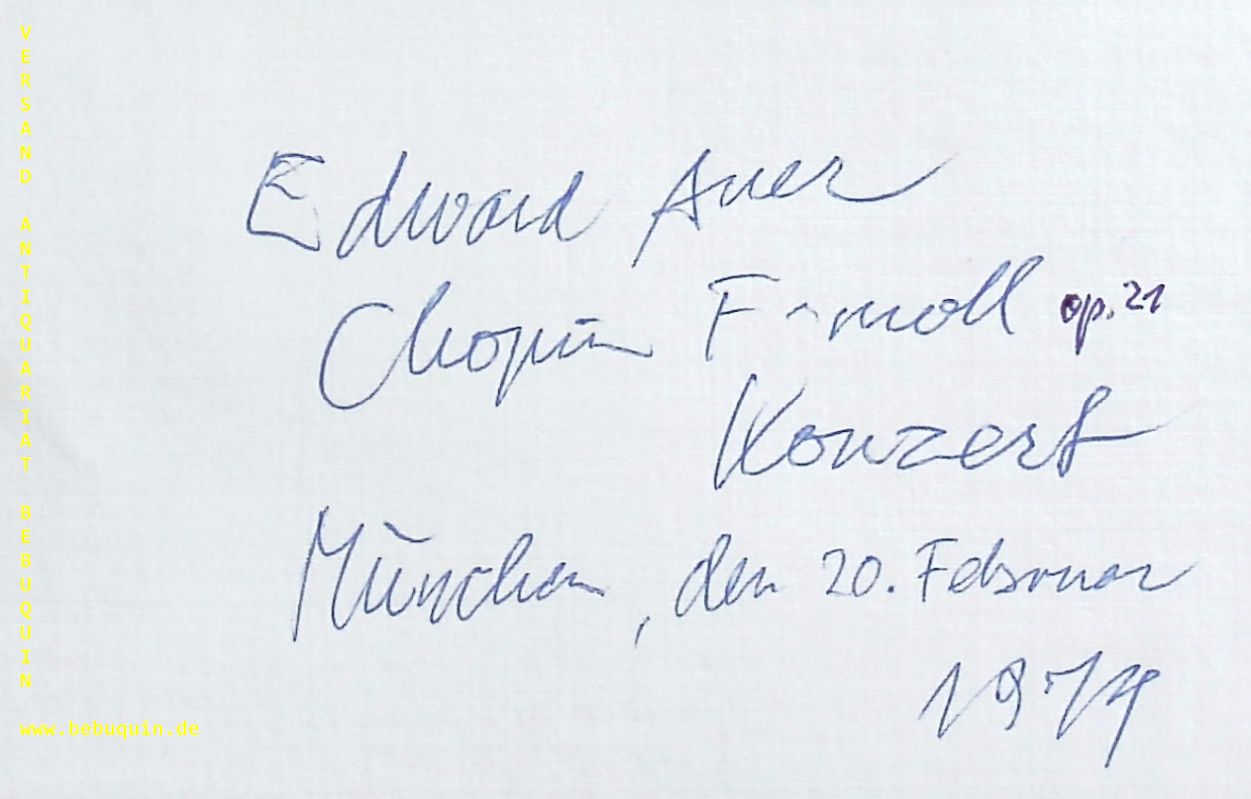 VERSAND ANTIQUARIAT BEBUQUIN
Edward Auer
Chopin F-moll op. 21
Konzert
München, den 20. Februar
1979
www.bebuquin.de